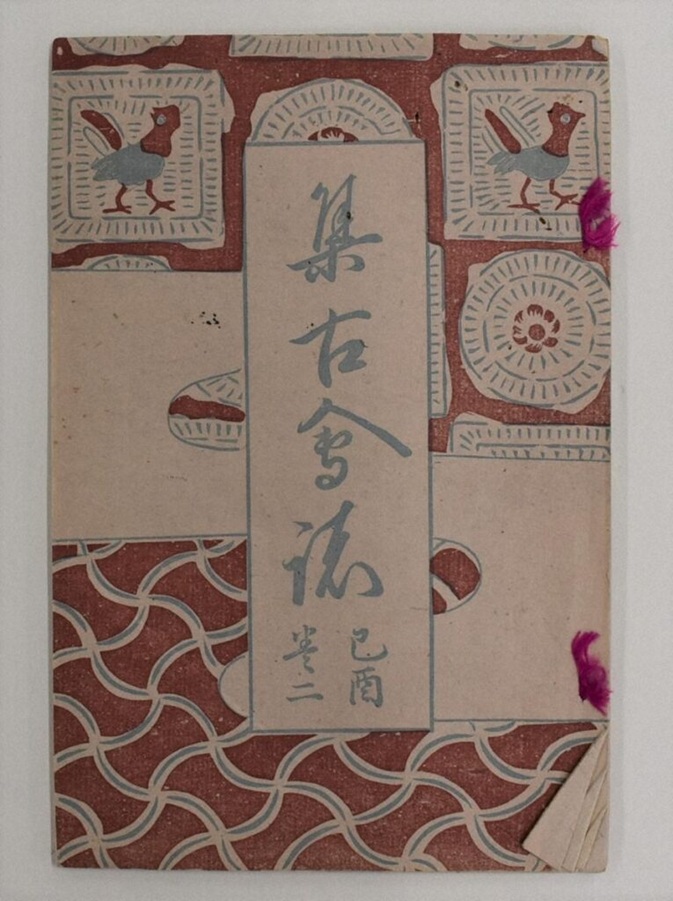 集古會誌
己酉
巻二